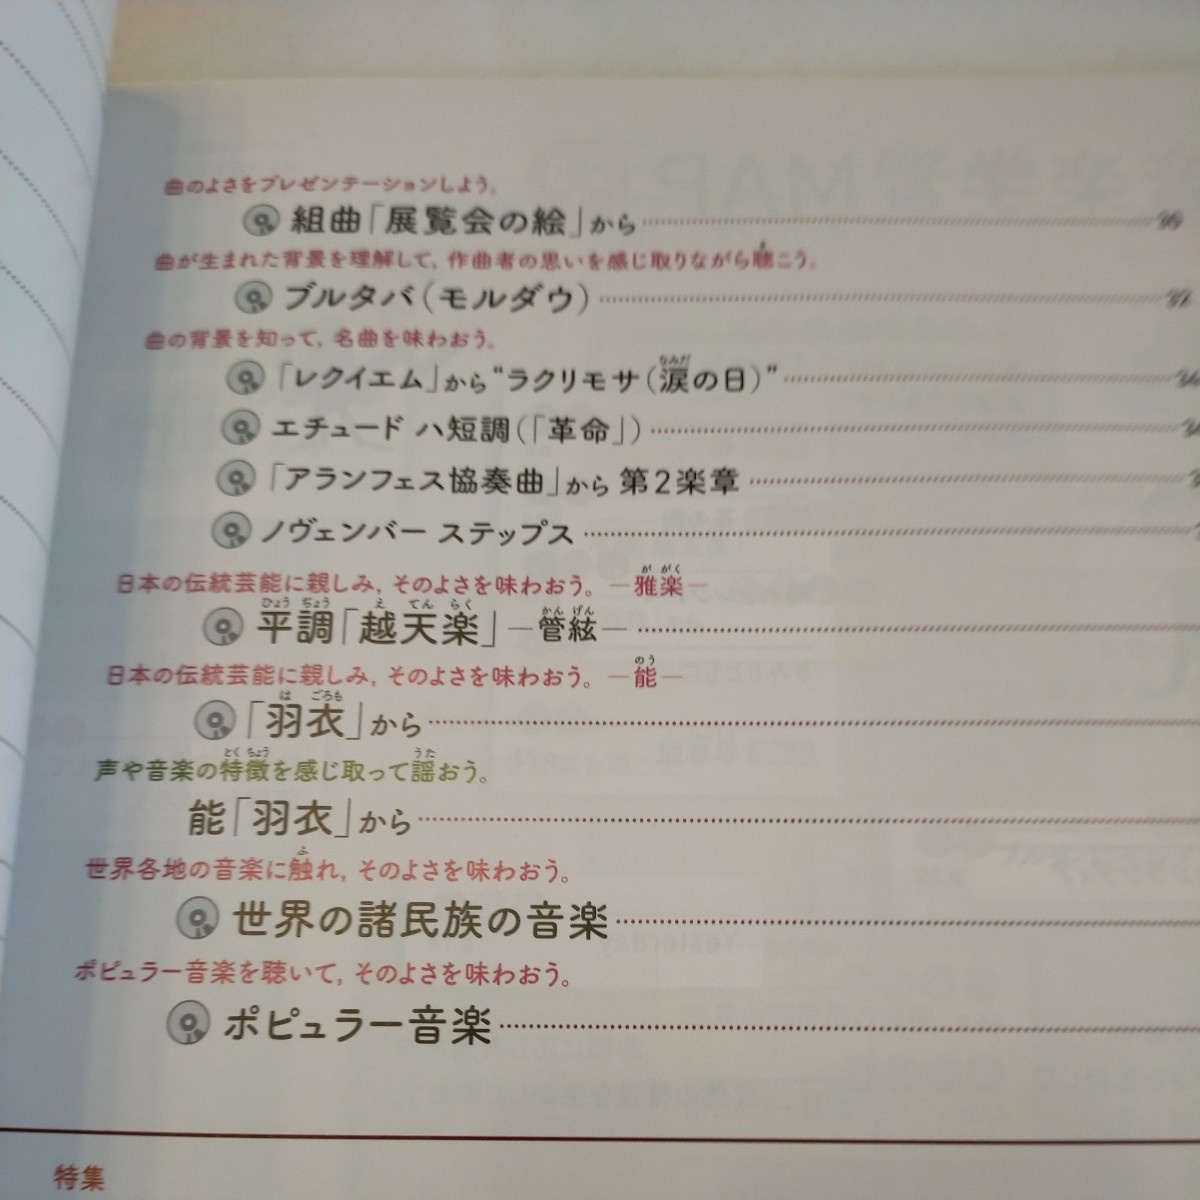 曲のよさをプレゼンテーションしよう。
組曲「展覧会の絵」から
曲が生まれた背景を理解して、作曲者の思いを感じ取りながら聴こう。
ブルタバ(モルダウ)
曲の背景を知って、名曲を味わおう。
「レクイエム」から“ラクリモサ(涙の日)”
エチュード ハ短調(「革命」)
「アランフェス協奏曲」から 第2楽章
ノヴェンバー ステップス
日本の伝統芸能に親しみ、そのよさを味わおう。 ―雅楽―
平調「越天楽」―管絃―
日本の伝統芸能に親しみ、そのよさを味わおう。 ―能―
「羽衣」から
声や音楽の特徴を感じ取って謡おう。
能「羽衣」から
世界各地の音楽に触れ、そのよさを味わおう。
世界の諸民族の音楽
ポピュラー音楽を聴いて、そのよさを味わおう。
ポピュラー音楽
特集